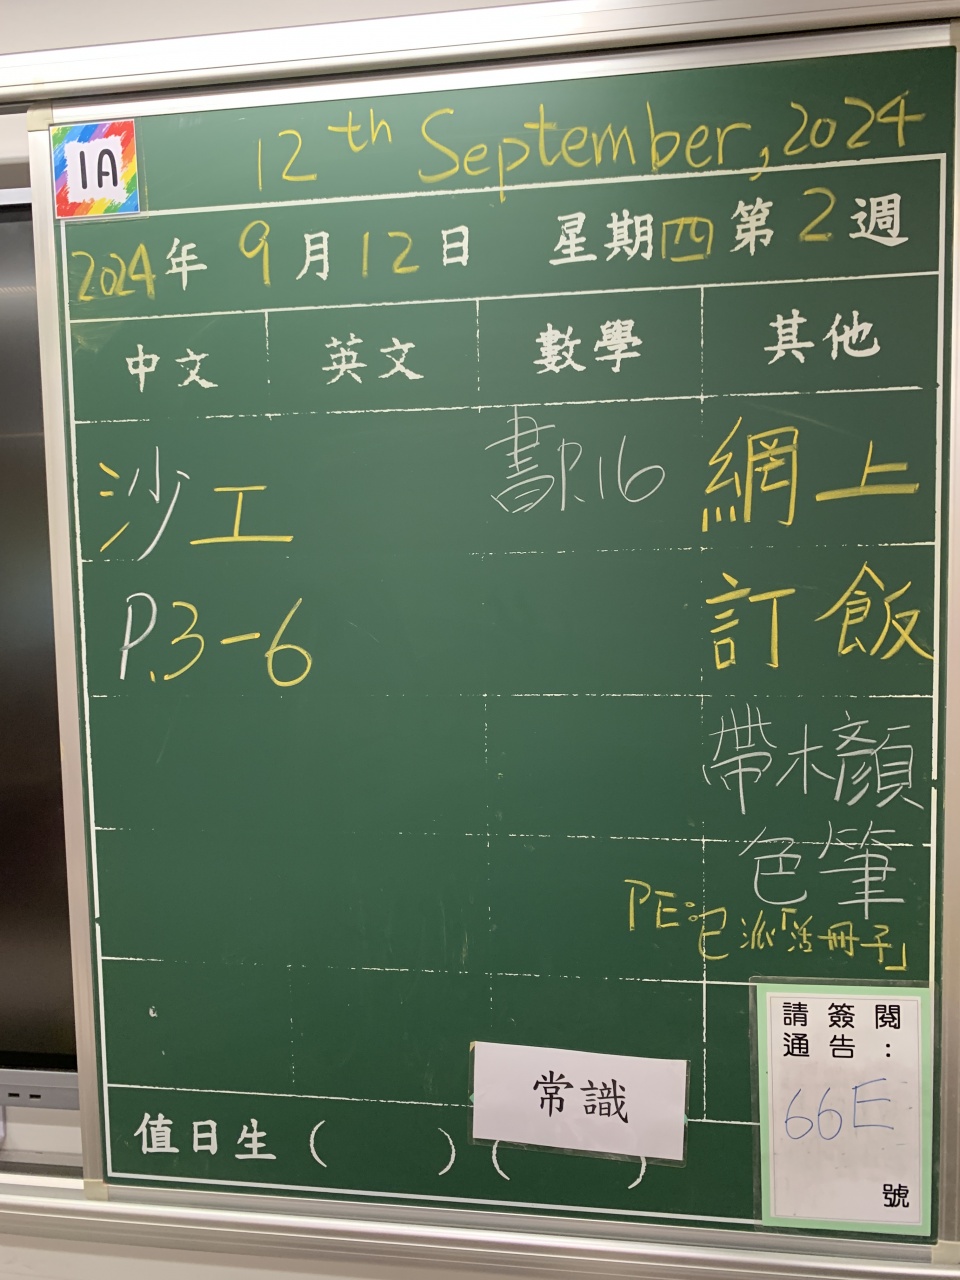 1A
12th September, 2024
2024年 9月12日 星期四 第2週
中文 英文 數學 其他
沙工 書P.16 網上
P.3-6 訂飯
帶木顏
色筆
PE:已派「活冊子」
請簽閱
通告:
66E
號
常識
值日生 ( ) ( )